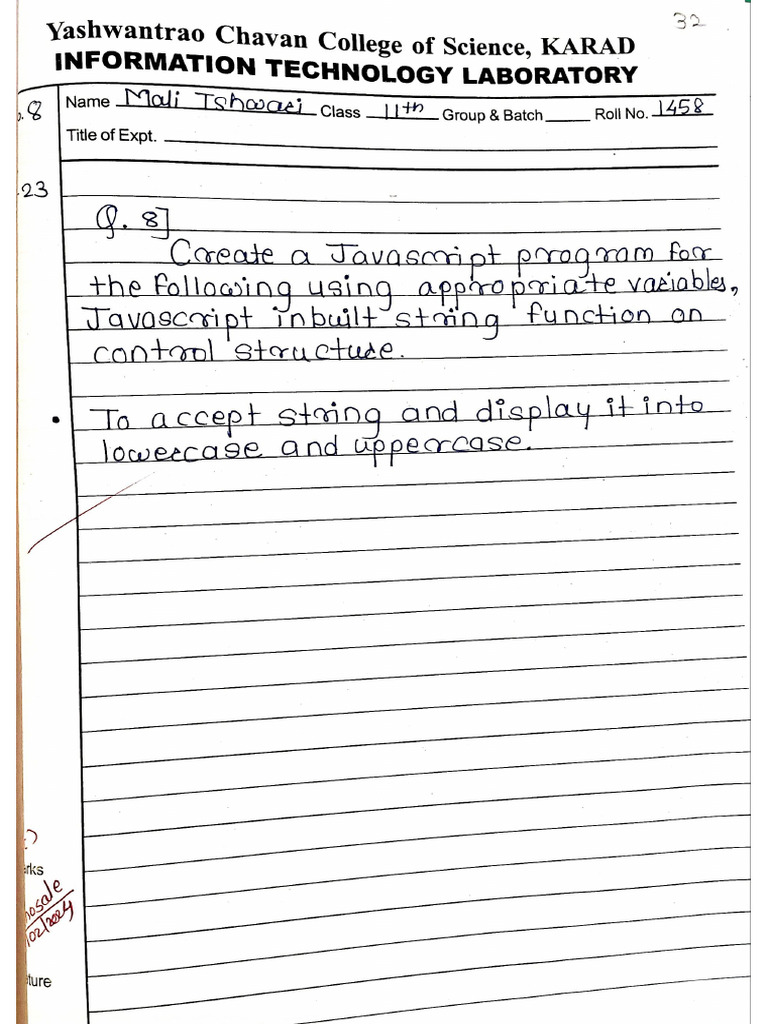 32
Yashwantrao Chavan College of Science, KARAD
INFORMATION TECHNOLOGY LABORATORY
.8 Name Mali Ishwari Class 11th Group & Batch Roll No. 1458
Title of Expt.
23
Q. 8]
Create a Javascript program for
the following using appropriate variables,
Javascript inbuilt string function on
control structure.
• To accept string and display it into
lowercase and uppercase.
rks
hosale
/02/2024
ture